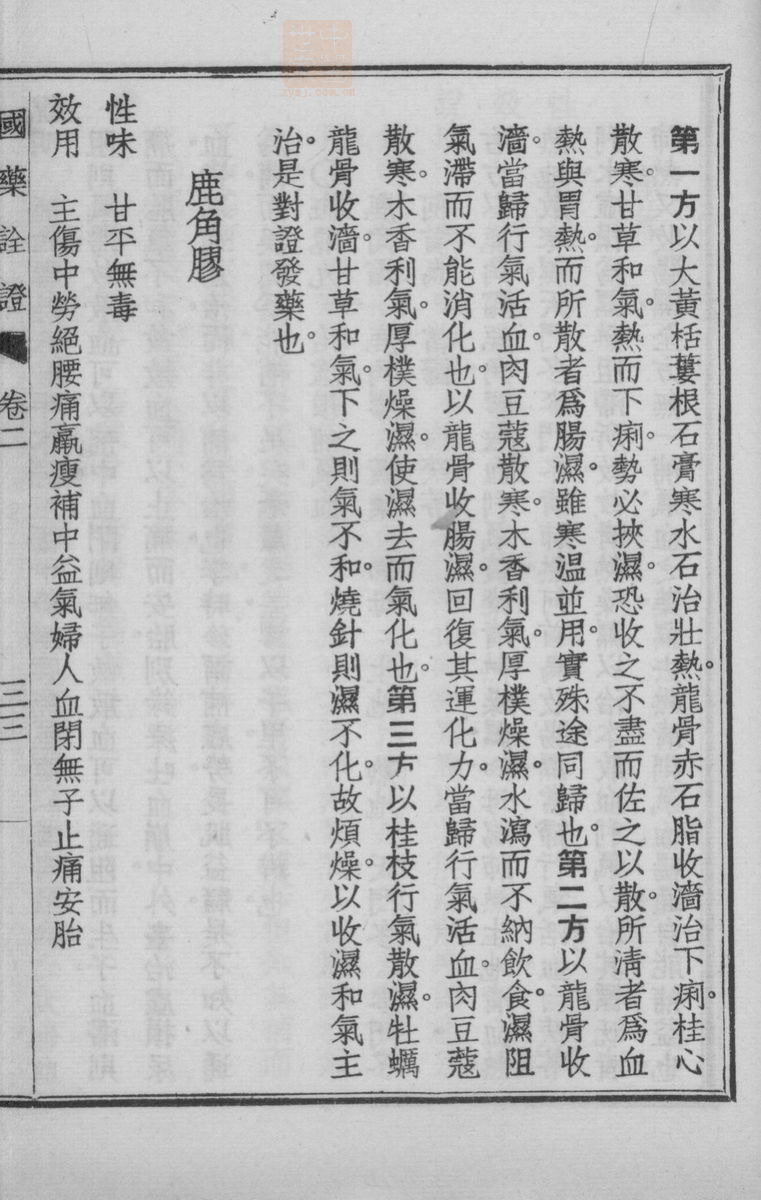 第一方以大黃栝蔞根石膏寒水石治壯熱。龍骨赤石脂收濇治下痢。桂心
散寒。甘草和氣。熱而下痢。勢必挾濕。恐收之不盡而佐之以散。所淸者爲血
熱與胃熱。而所散者爲腸濕。雖寒温並用。實殊途同歸也。第二方以龍骨收
濇。當歸行氣活血。肉豆蔻散寒。木香利氣。厚樸燥濕。水瀉而不納飲食。濕阻
氣滯而不能消化也。以龍骨收腸濕。回復其運化力。當歸行氣活血。肉豆蔻
散寒。木香利氣。厚樸燥濕。使濕去而氣化也。第三方以桂枝行氣散濕。牡蠣
龍骨收濇。甘草和氣。下之則氣不和。燒針則濕不化。故煩燥。以收濕和氣主
治。是對證發藥也。
鹿角膠
性味　甘平無毒
效用　主傷中勞絕腰痛羸瘦補中益氣婦人血閉無子止痛安胎
國藥詮證　卷二　三三
zysj.com.cn